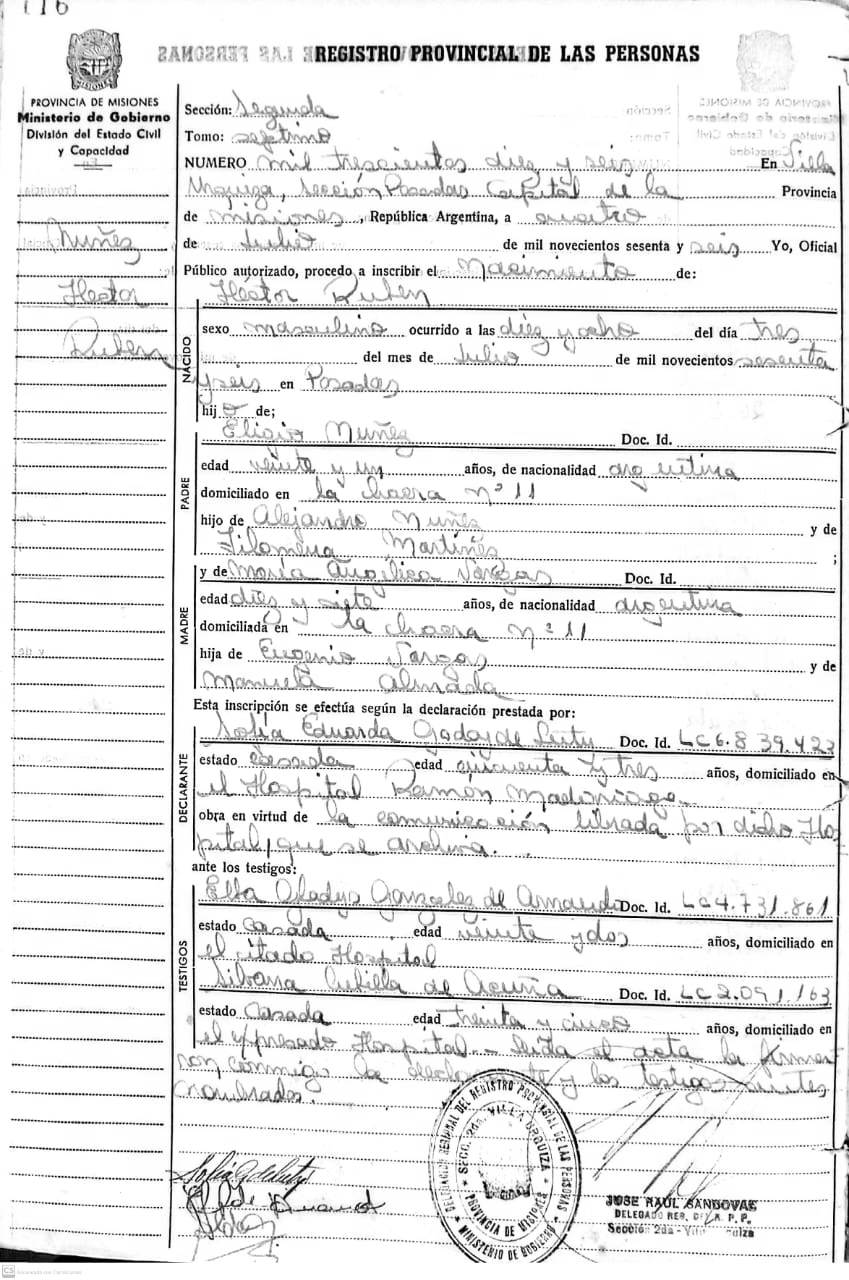 116
REGISTRO PROVINCIAL DE LAS PERSONAS
PROVINCIA DE MISIONES
Ministerio de Gobierno
División del Estado Civil
y Capacidad
Nuñez
Hector
Ruben
Sección: Segunda
Tomo: septimo
NUMERO mil trescientos diez y seis En Villa
Urquiza, Sección Posadas Capital de la Provincia
de misiones, República Argentina, a cuatro
de Julio de mil novecientos sesenta y seis Yo, Oficial
Público autorizado, procedo a inscribir el Nacimiento de:
NACIDO
Héctor Ruben
sexo masculino ocurrido a las diez y ocho del día tres
del mes de Julio de mil novecientos sesenta
y seis en Posadas
hijo de;
PADRE
Eligio Nuñez Doc. Id.
edad veinte y un años, de nacionalidad argentina
domiciliado en la chacra nº 11
hijo de Alejandro Nuñes y de
Filomena Martines ;
MADRE
y de María Angélica Vargas Doc. Id.
edad diez y siete años, de nacionalidad argentina
domiciliada en la chacra nº 11
hija de Eugenio Vargas y de
Manuela Almada
Esta inscripción se efectúa según la declaración prestada por:
DECLARANTE
Sofía Eduarda Godoy de Doc. Id. LC 6.839.423
estado casada edad cincuenta y tres años, domiciliado en
el Hospital Ramón Madariaga
obra en virtud de la comunicación librada por dicho Hos
pital, que se archiva.
ante los testigos:
TESTIGOS
Elba Gladys Gonzales de Doc. Id. LC 4.731.861
estado casada edad veinte y dos años, domiciliado en
el citado Hospital
Silvana Cubilla de Acuña Doc. Id. LC 2.091.163
estado casada edad treinta y cinco años, domiciliado en
el expresado Hospital - Leida el acta la firma
ron conmigo la declarante y los testigos antes
nombrados.
DELEGACION REGIONAL DEL REGISTRO PROVINCIAL DE LAS PERSONAS
SECC. 2da. VILLA URQUIZA
PROVINCIA DE MISIONES
MINISTERIO DE GOBIERNO
JOSE RAUL SANDOVAL
DELEGADO REG. DEL R. P. P.
Sección 2da - Villa Urquiza
CS